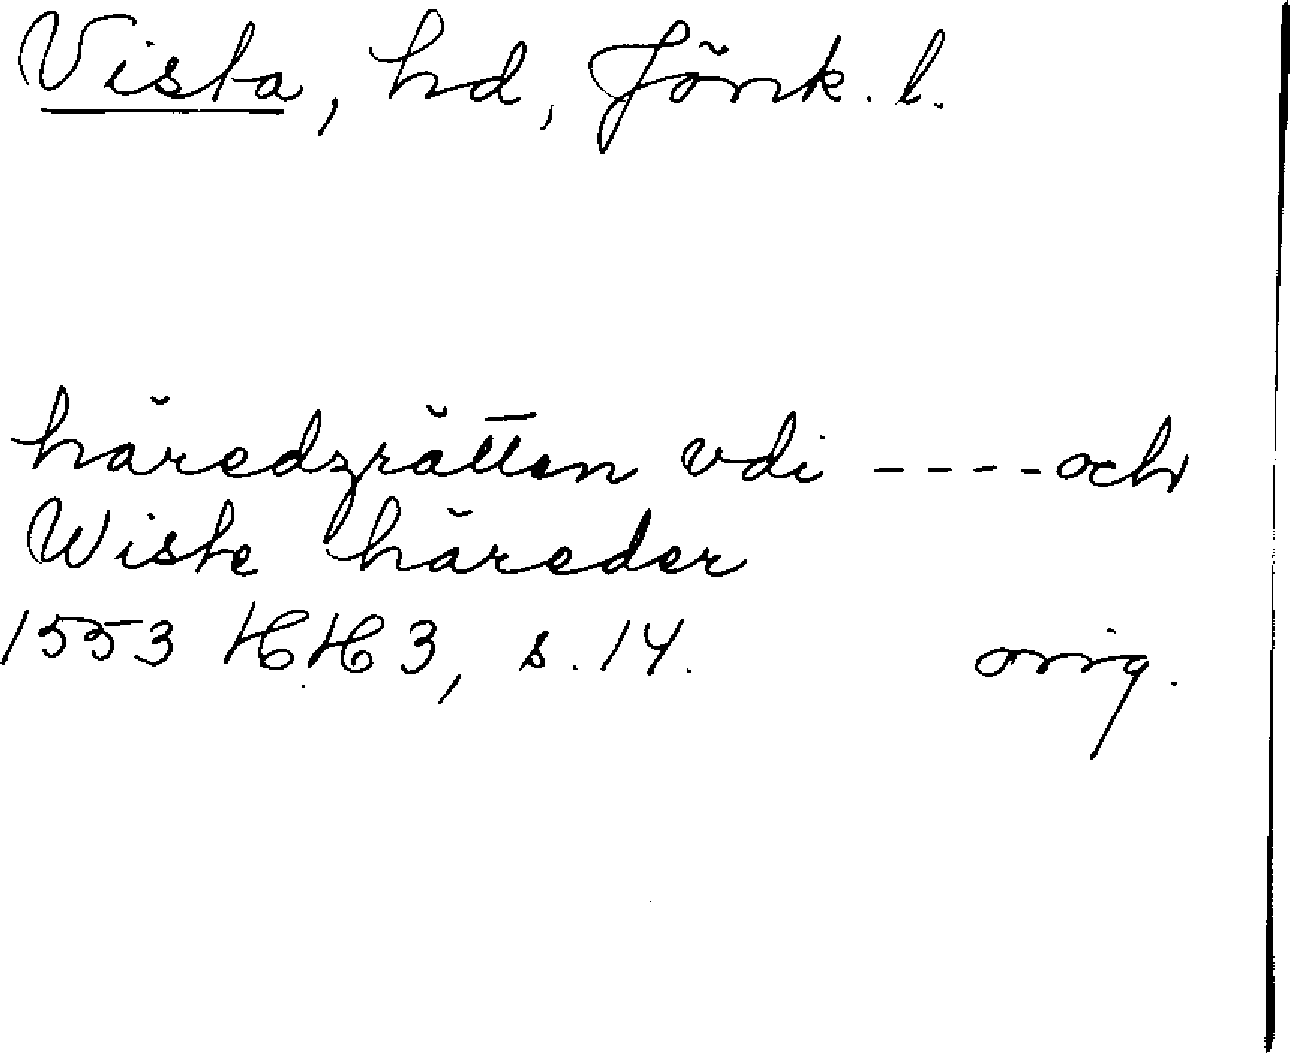 Vista, hd, Jönk. l.
häredzrätten vdi ---- och
Wiste häreder
1553 HH 3, s. 14. orig.